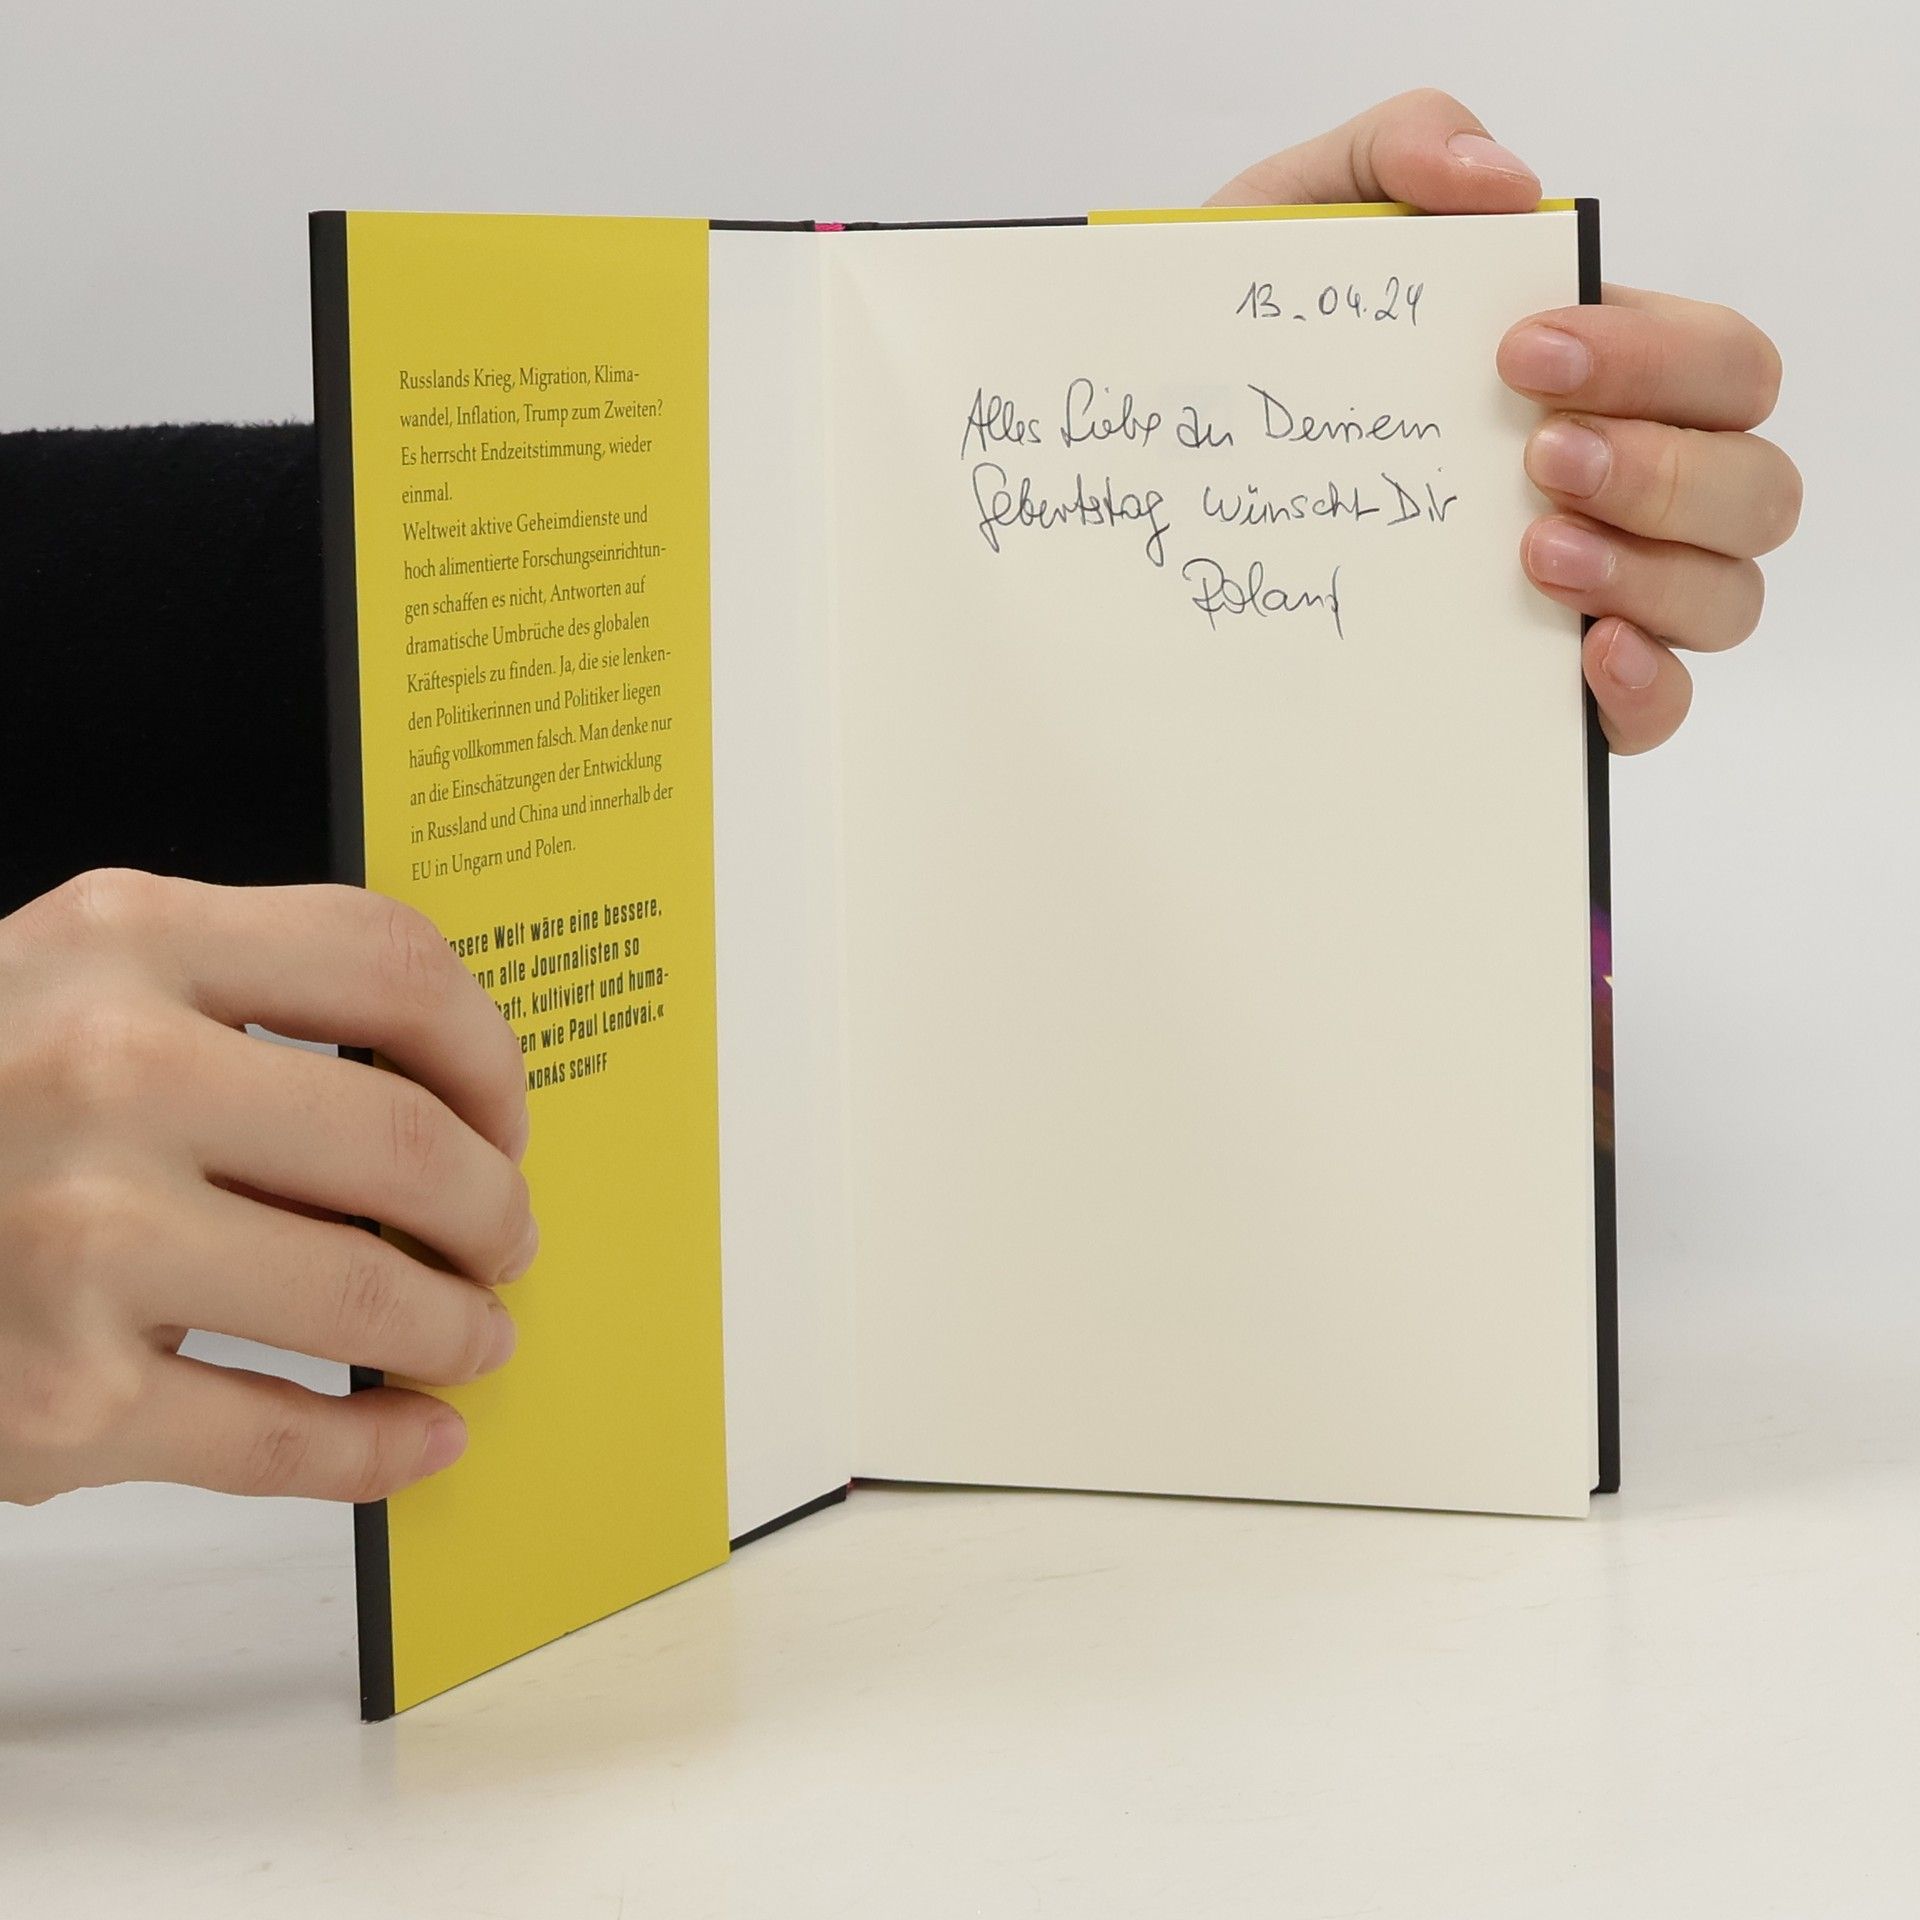 Russlands Krieg, Migration, Klima-
wandel, Inflation, Trump zum Zweiten?
Es herrscht Endzeitstimmung, wieder
einmal.
Weltweit aktive Geheimdienste und
hoch alimentierte Forschungseinrichtun-
gen schaffen es nicht, Antworten auf
dramatische Umbrüche des globalen
Kräftespiels zu finden. Ja, die sie lenken-
den Politikerinnen und Politiker liegen
häufig vollkommen falsch. Man denke nur
an die Einschätzungen der Entwicklung
in Russland und China und innerhalb der
EU in Ungarn und Polen.
Welt wäre eine bessere,
alle Journalisten so
kultiviert und huma-
wie Paul Lendvai.«
SCHIFF
13.04.24
Alles Liebe zu Deinem
Geburtstag wünscht Dir
Roland